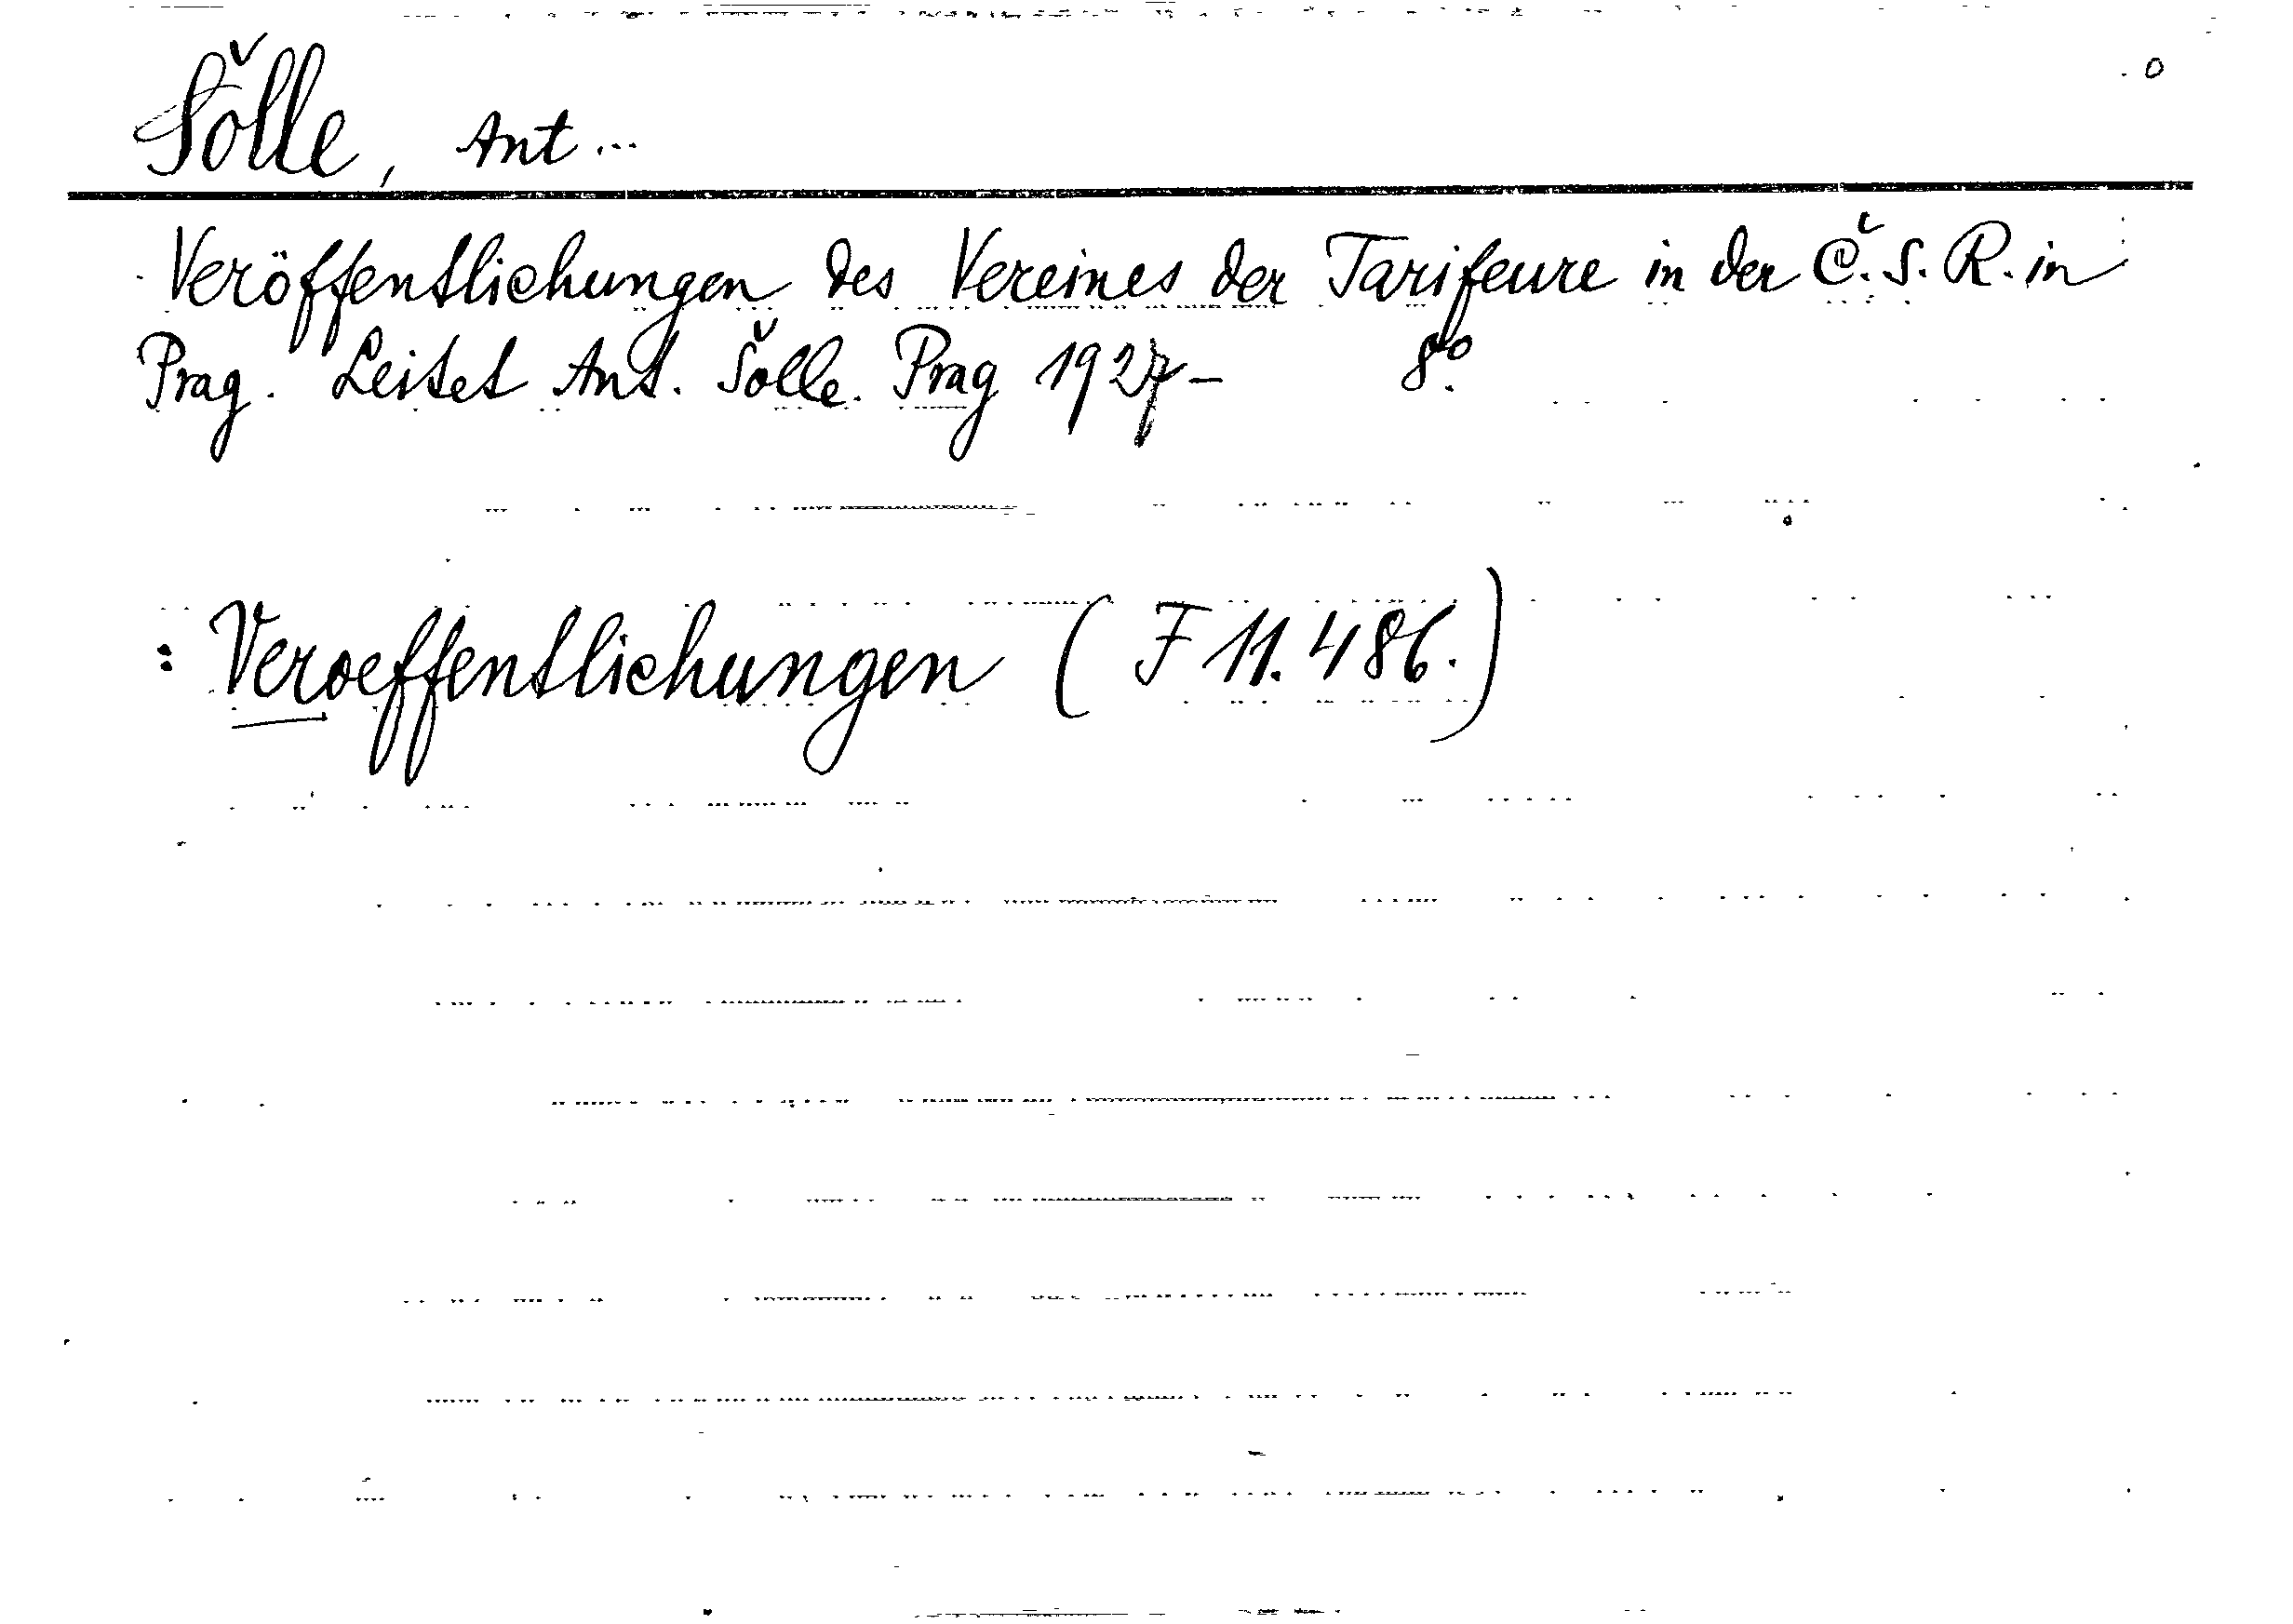 Šolle, Ant...
Veröffentlichungen des Vereines der Tarifeure in der Č. S. R. in
Prag. Leitet Ant. Šolle. Prag 1927- 8o.
: Veroeffentlichungen (F 11.486.)